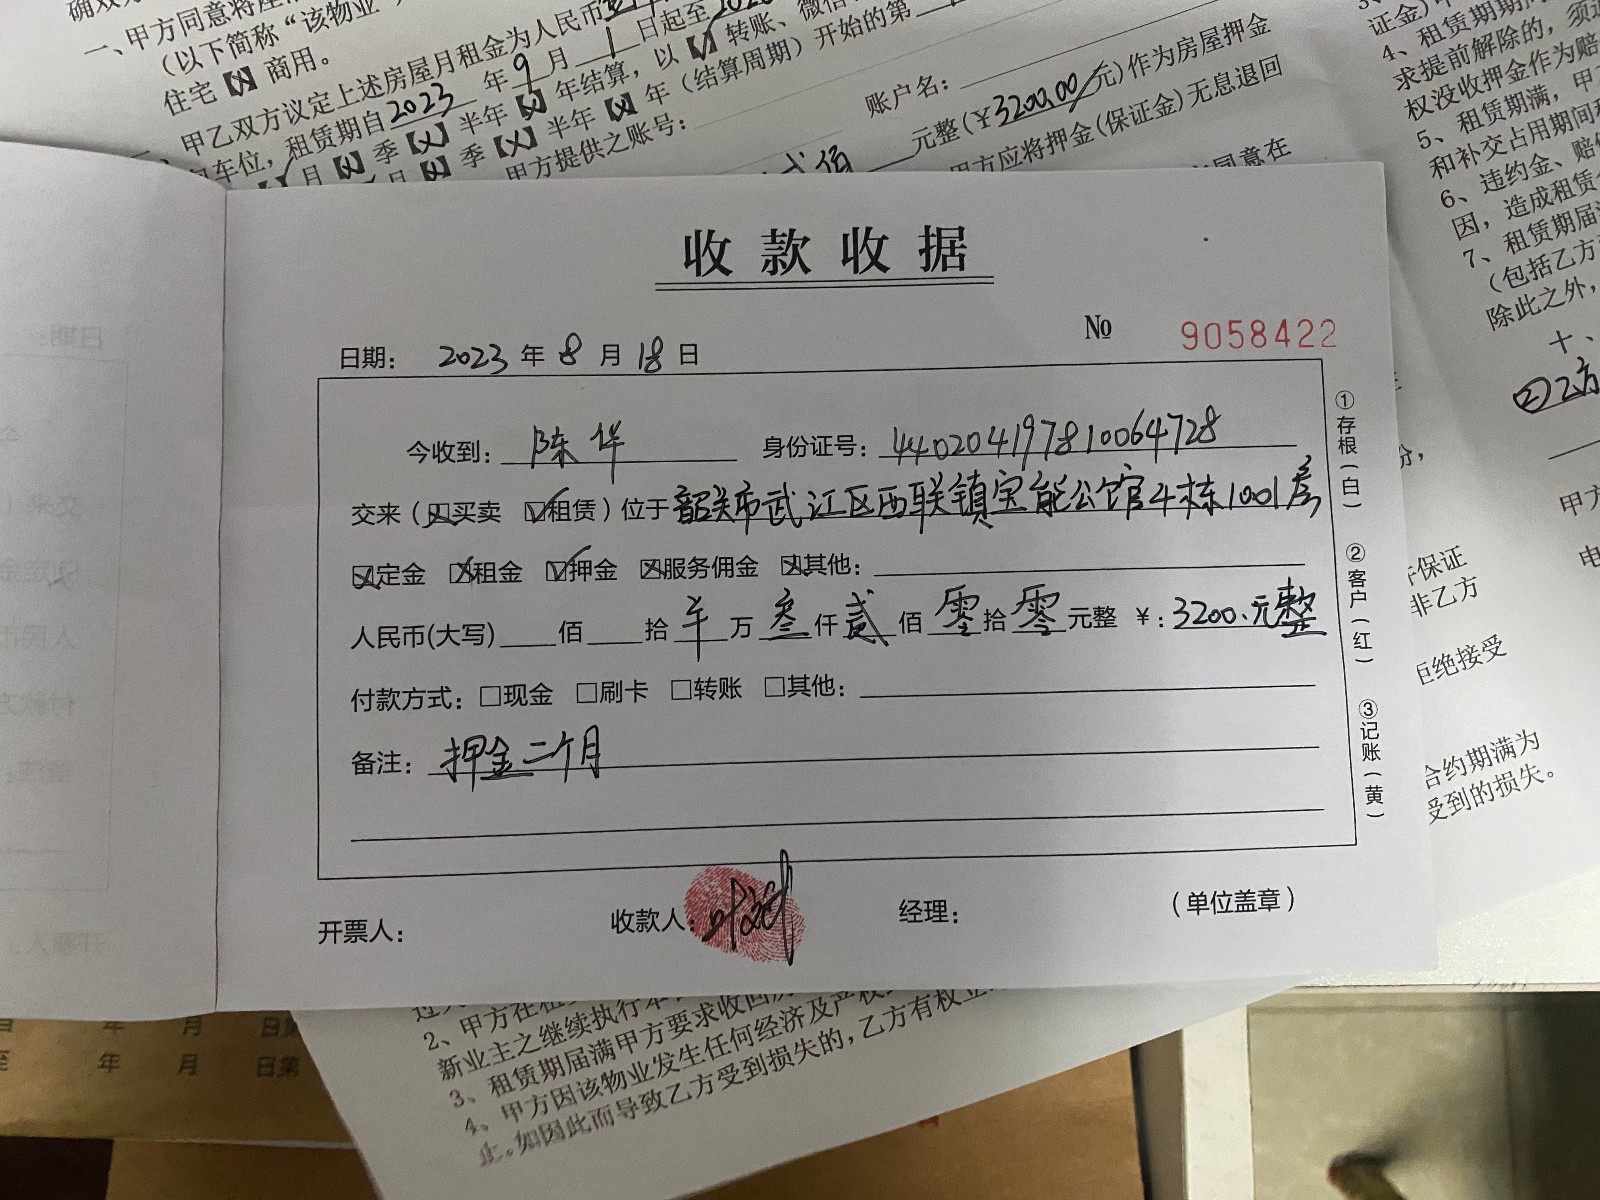 一、甲方同意将座
（以下简称“该物业”
住宅【X】商用。
甲乙双方议定上述房屋月租金为人民币
车位，租赁期自2023年9月1日起至
月【X】季【X】半年【X】年结算，以【√】转账、微信
季【X】半年【X】年（结算周期）开始的第
甲方提供之账号：
账户名：
贰佰 元整(￥3200.00元)作为房屋押金
甲方应将押金(保证金)无息退回
同意在
证金)
4、租赁期期
求提前解除的，须
权没收押金作为赔
5、租赁期满，甲
和补交占用期间
6、违约金、赔
因，造成租赁
7、租赁期届
（包括乙方
除此之外，
十、
②乙方
收款收据
№ 9058422
日期： 2023 年 8 月 18 日
今收到： 陈华 身份证号： 440204197810064728
交来（☒买卖 ☑租赁）位于 韶关市武江区西联镇宝能公馆4栋1001房
☒定金 ☒租金 ☑押金 ☒服务佣金 ☒其他：
人民币(大写) 佰 拾 羊 万 叁 仟 贰 佰 零 拾 零 元整 ￥: 3200.元整
付款方式：□现金 □刷卡 □转账 □其他：
备注： 押金二个月
①存根（白）
②客户（红）
③记账（黄）
开票人： 收款人： 经理： （单位盖章）
份，
甲方
保证
电
非乙方
拒绝接受
合约期满为
受到的损失。
年 月 日第
至 年 月 日第
2、甲方在租
新业主之继续执行本
3、租赁期届满甲方要求收回房
4、甲方因该物业发生任何经济及产权
止。如因此而导致乙方受到损失的，乙方有权立